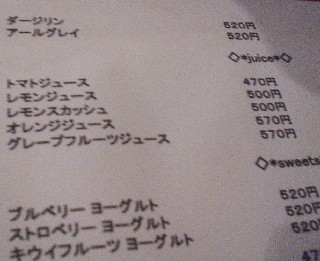 ダージリン 520円
アールグレイ 520円
◇*juice*◇
トマトジュース 470円
レモンジュース 500円
レモンスカッシュ 500円
オレンジジュース 570円
グレープフルーツジュース 570円
◇*sweets
ブルベリー ヨーグルト 520円
ストロベリー ヨーグルト 520円
キウイフルーツ ヨーグルト 520
47